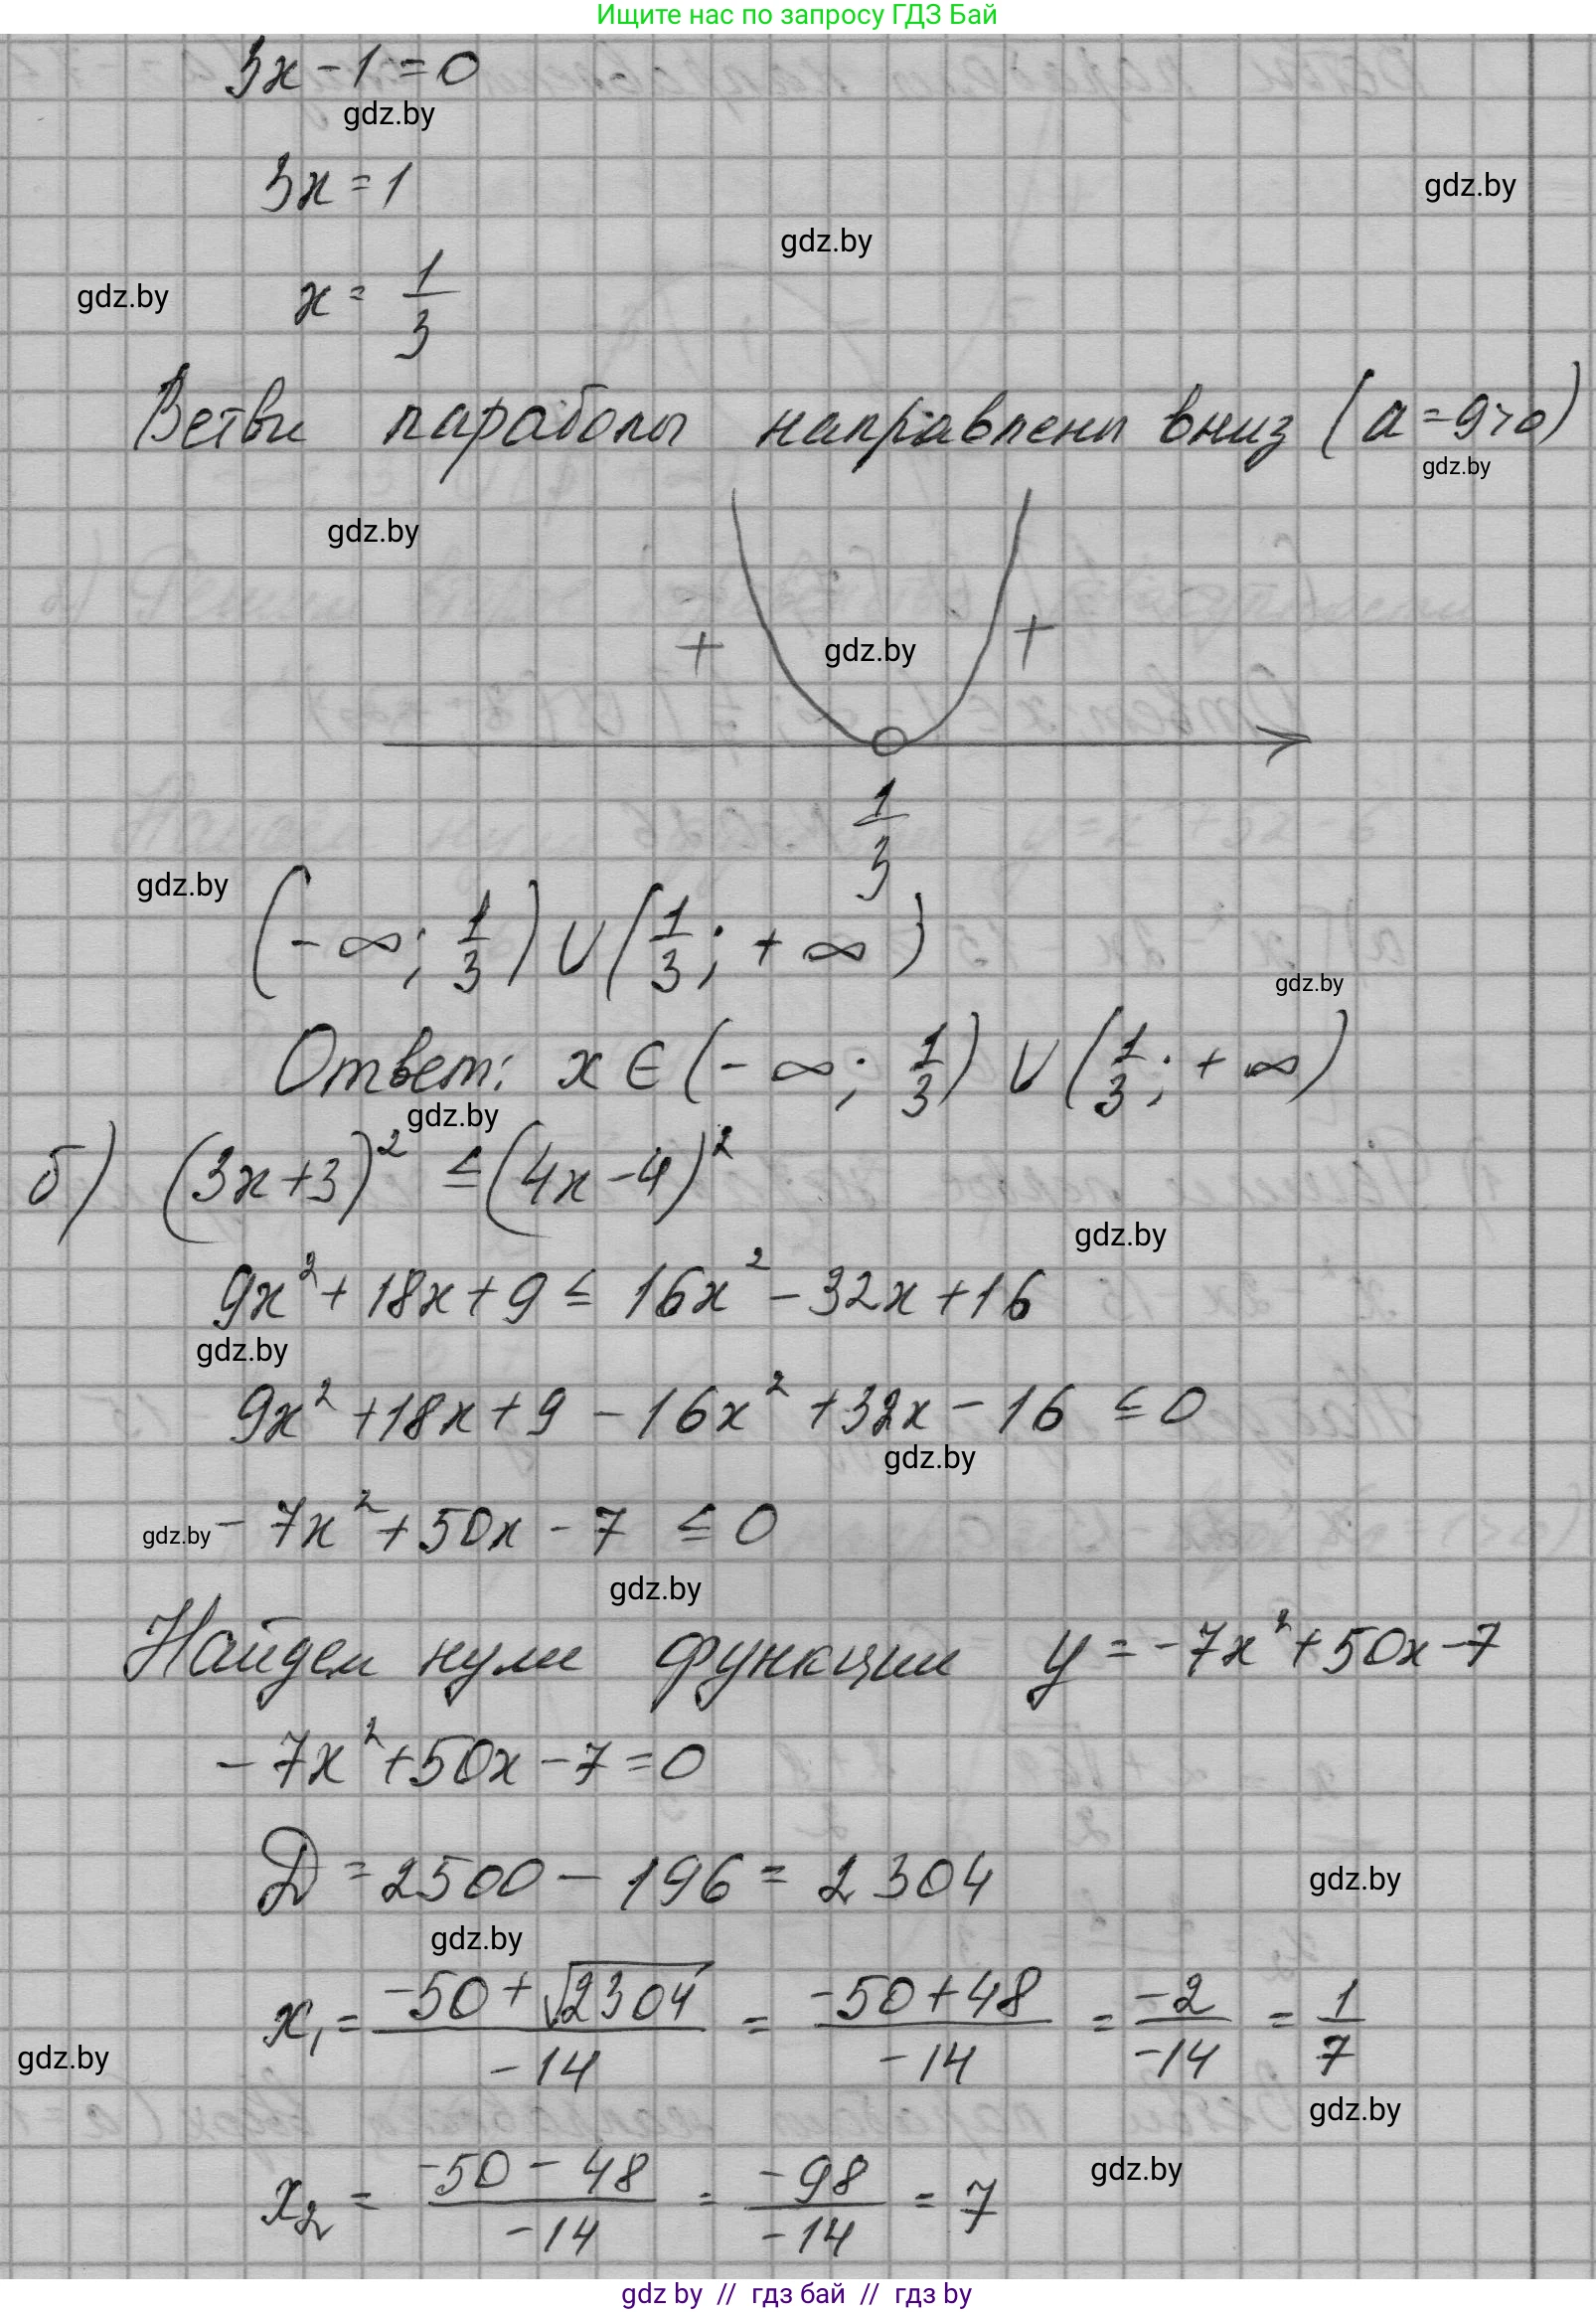 Ищите нас по запросу ГДЗ Бай
3x - 1 = 0
gdz.by
3x = 1
gdz.by
gdz.by
gdz.by
x = 1/3
Ветви параболы направлены вниз (a = 9 > 0)
gdz.by
gdz.by
+ gdz.by +
1/3
gdz.by
(- ∞; 1/3) ∪ (1/3; + ∞)
gdz.by
Ответ: x ∈ (- ∞; 1/3) ∪ (1/3; + ∞)
gdz.by
б) (3x+3)² ≤ (4x-4)²
gdz.by
9x² + 18x + 9 ≤ 16x² - 32x + 16
gdz.by
9x² + 18x + 9 - 16x² + 32x - 16 ≤ 0
gdz.by
gdz.by - 7x² + 50x - 7 ≤ 0
gdz.by
Найдем нули функции y = -7x² + 50x - 7
- 7x² + 50x - 7 = 0
D = 2500 - 196 = 2304
gdz.by
gdz.by
x₁ = (-50 + √2304)/(-14) = (-50 + 48)/(-14) = (-2)/(-14) = 1/7
gdz.by
gdz.by
gdz.by
x₂ = (-50 - 48)/(-14) = (-98)/(-14) = 7
gdz by // гдз бай // gdz by